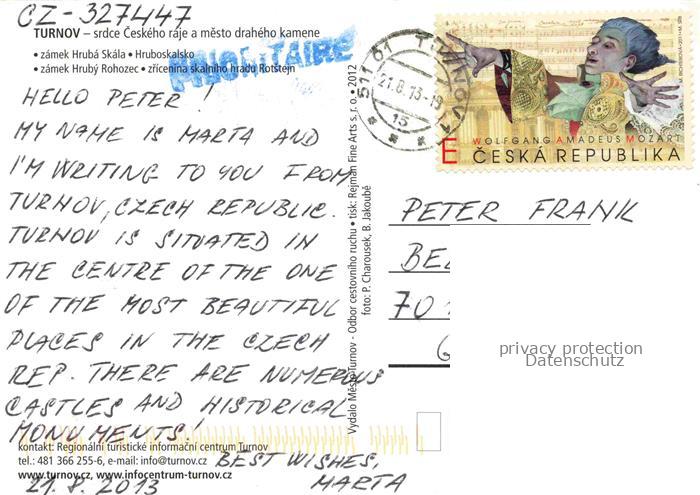 CZ-327447
TURNOV – srdce Českého ráje a město drahého kamene
• zámek Hrubá Skála • Hruboskalsko
• zámek Hrubý Rohozec • zřícenina skalního hradu Rotštejn
PRIORITAIRE
HELLO PETER!
MY NAME IS MARTA AND
I'M WRITING TO YOU FROM
TURNOV, CZECH REPUBLIC.
TURNOV IS SITUATED IN
THE CENTRE OF THE ONE
OF THE MOST BEAUTIFUL
PLACES IN THE CZECH
REP. THERE ARE NUMEROUS
CASTLES AND HISTORICAL
MONUMENTS!
kontakt: Regionální turistické informační centrum Turnov
tel.: 481 366 255-6, e-mail: info@turnov.cz
www.turnov.cz, www.infocentrum-turnov.cz
BEST WISHES,
21.8.2013 MARTA
Vydalo Město Turnov - Odbor cestovního ruchu • tisk: Rejman Fine Arts s. r. o. • 2012
foto: P. Charousek, B. Jakoubě
511 01 TURNOV 1
21.8.13-19
15
WOLFGANG AMADEUS MOZART
E ČESKÁ REPUBLIKA
PETER FRANK
BE
70
privacy protection
Datenschutz